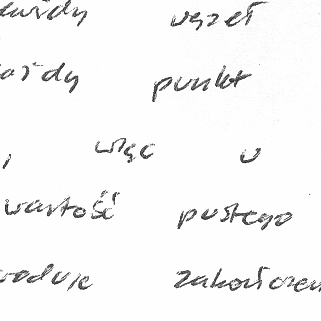 każdy węzeł
każdy punkt
, więc u
wartość pustego
zakończen